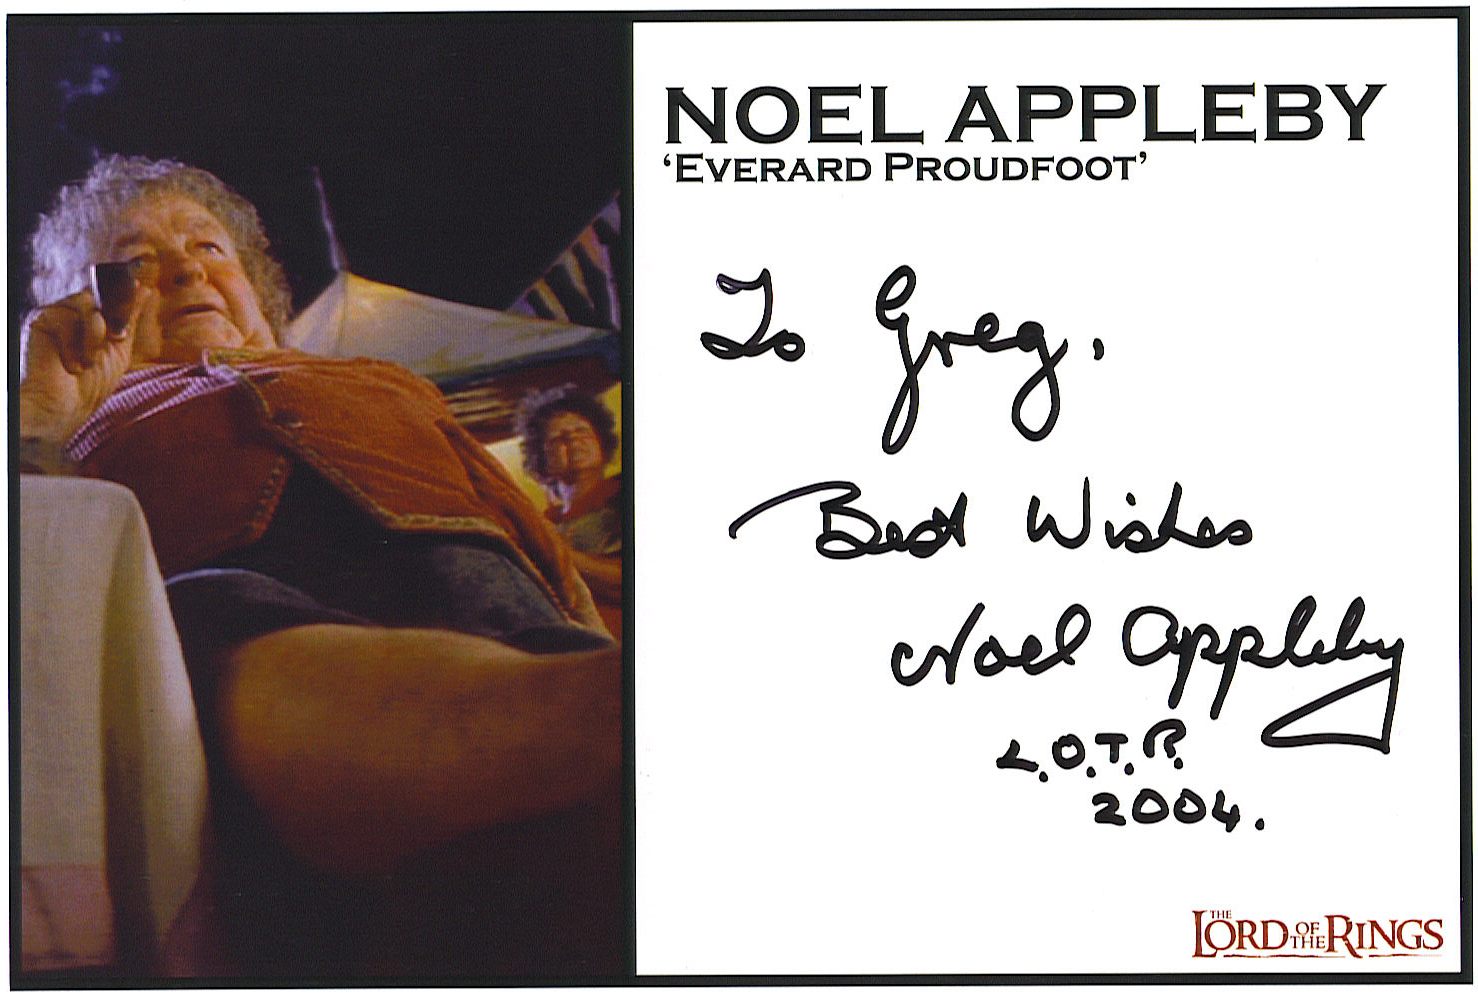 NOEL APPLEBY
‘EVERARD PROUDFOOT’
To Greg.
Best Wishes
Noel Appleby
L.O.T.R.
2004.
THE LORD OF THE RINGS